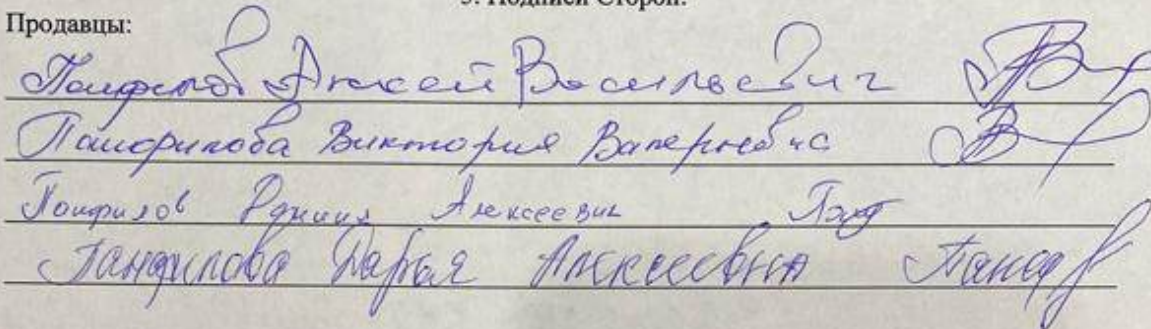 5. Подписи Сторон:
Продавцы:
Панфилов Алексей Васильевич
Панфилова Виктория Валерьевна
Панфилов Алексеевич
Панфилова Дарья Алексеевна Панф